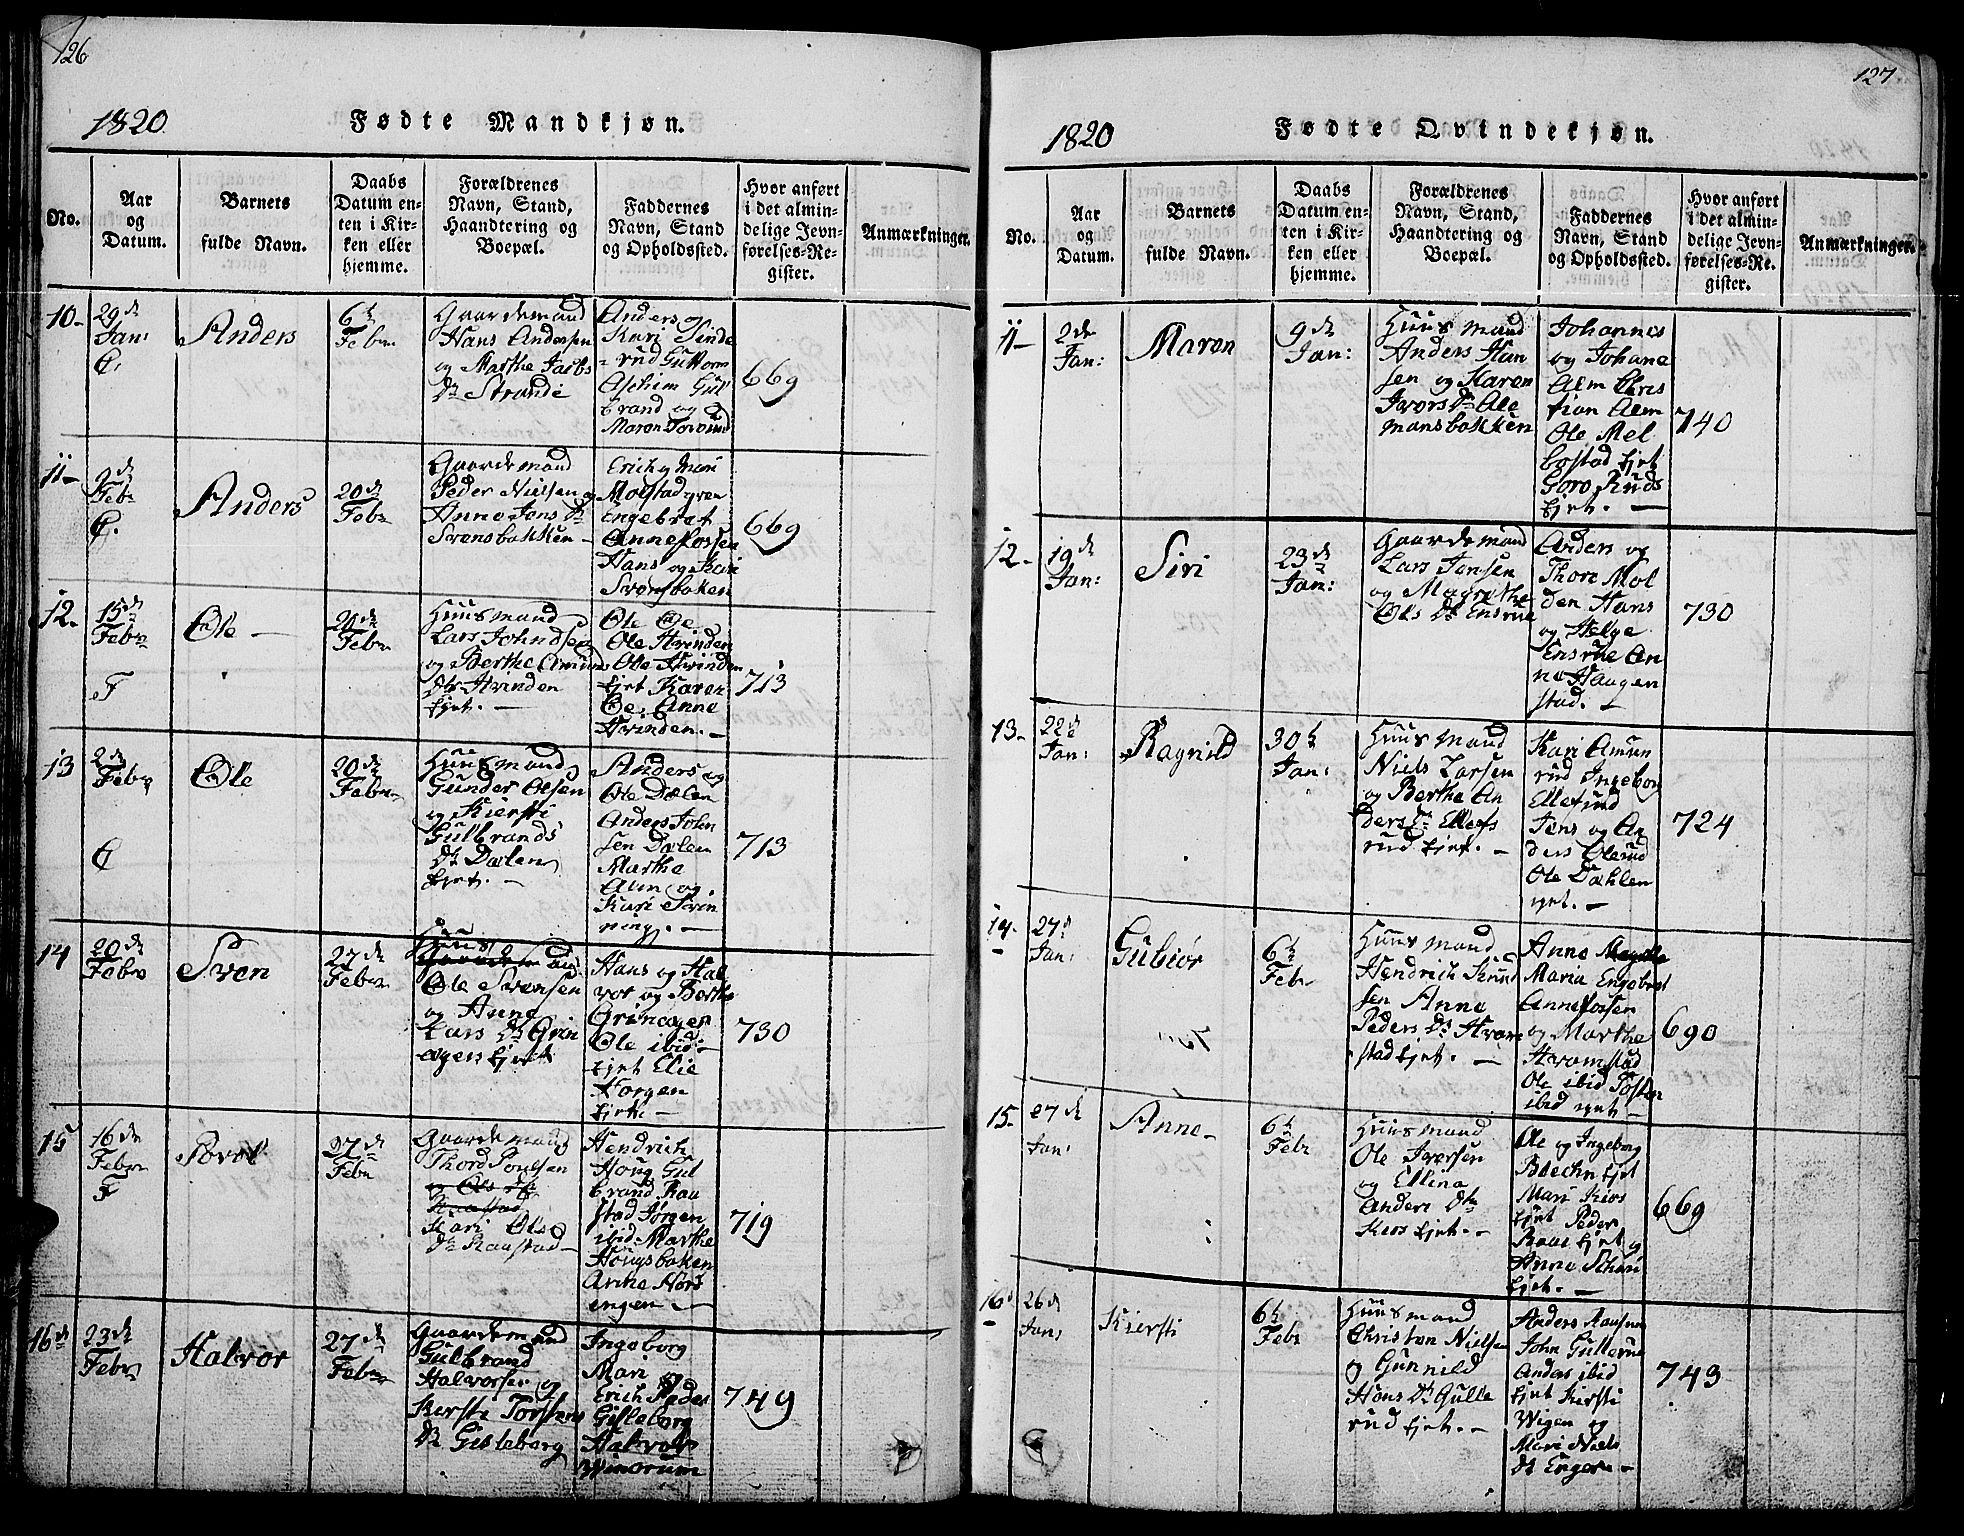 126
1820
Fødte Mandkjøn.
No.
Aar
og
Datum.
Barnets
fulde Navn.
Daabs
Datum en-
ten i Kir-
ken eller
hjemme.
Forældrenes
Navn, Stand,
Haandtering og
Boepæl.
Faddernes
Navn, Stand
og Opholdssted.
Hvor anført
i det almin-
delige Jevn-
førelses-Re-
gister.
Anmærkninger.
10-
29de
Jan:
C.
Anders
6te
Febr
Gaardemand
Hans Andersen
og Marthe
Dr Strande
Anders og
Kari Sinde
rud Guttorm
Aschim Gul
brand og
Maren
669
11-
2de
Febr
C.
Anders
20de
Febr
Gaardemand
Peder Nielsen og
Anne Jens Dr
Svensbakken-
Erich og Mari
Molstad
Engebret
Anne Fossen
Hans og Kari
Svensbaken
669
12.
15de
Febr
F
Ole -
20de
Febr
Huusmand
Lars Johnsen
og Berthe Amunds
Dr Hvinden
Ejet. -
Ole Oe
Ole Hvinden
Ole Hvinden
Ejet Karen
Oe, Anne
Hvinden. -
713
13
2de
Febr
C
Ole
20de
Febr
Huusmand
Gunder Olsen
og Kiersti
Gulbrands
Dr Dælen
Ejet. -
Anders og
Ole Dælen
Anders John
sen Dælen
Marthe
Alm og
Kari Svin
ning. -
713
14
20de
Febr
Sven
27de
Febr
Huus
Gaardemand
Ole Svensen
og Anne
Lars Dr Grin
agers Ejet
Hans og Hal
vor og Berthe
Grinager
Ole ibid
Ejet Elie
Horgen
Ejet. -
730
15
16de
Febr
F
27de
Febr
Gaardemand
Thord Poulsen
og Ols Dr
Raastad
Kari Ols
Dr Raastad-
Hendrich
Houg Gul
brand Raa
stad Jørgen
ibid Marthe
Hougsbaken
Anne Nord
engen -
719
16de
23de
Febr
Halvor
27de
Febr
Gaardemand
Gulbrand
Halvorsen og
Kersti Torstens
Dr Gisleberg
Ingeborg
Mari og
Erich Peder
Gisleborg
Halvor
Winorum
749
127
1820
Fødte Qvindekjøn.
No.
Aar
og
Datum.
Barnets
fulde Navn.
Daabs
Datum en-
ten i Kir-
ken eller
hjemme.
Forældrenes
Navn, Stand,
Haandtering og
Boepæl.
Faddernes
Navn, Stand
og Opholdssted.
Hvor anført
i det almin-
delige Jevn-
førelses-Re-
gister.
Anmærkninger.
11-
2de
Jan:
Maren
9de
Jan:
Huusmand
Anders Han
sen og Karen
Ivers Dr Ale
mansbakken
Johannes
og Johane
Alm Chris
tian Alm
Ole Mel
bostad Ejet
Goro Ruds
Ejet. -
740
12-
19de
Jan:
Siri
23de
Jan:
Gaardemand
Lars Jensen
og Magrethe
Ols Dr Ensrue
Anders og
Thore Mol
den Hans
og Helge
Ensrue An
ne Haagen
stad. -
730
13-
22de
Jan:
Ragnild
30te
Jan:
Huusmand
Niels Larsen
og Berthe An
ders Dr Ellefs
rud Ejet. -
Kari Amun
rud Ingebor
Ellefsrud
Jens og An
ders Olerud
Ole Dæhlen
Ejet. -
724
14-
27de
Jan:
Gubiør
6te
Febr
Huusmand
Hendrich Knud
sen Anne
Peders Dr Hvam
stad Ejet. -
Anne
Maria Engebret
Anne Fossen
og Marthe
Hvamstad
Ole ibid Tosten
ibid Ejet -
690
15-
27de
Jan:
Anne-
6te
Febr
Huusmand
Ole Iversen
og Ellina
Anders Dtr
Kios Ejet. -
Ole og Ingeborg
Blechn Ejet
Mari Kios
Ejet Peder
Raae Ejet og
Anne Schari
Ejet. -
669
16
26de
Jan:
Kiersti
6te
Febr
Huusmand
Christen Nielsen
og Gunnild
Hans Dr Gulle
rud Ejet. -
Anders
John Gullerud
Anders ibid
Ejet Kiersti
Wigen og
Mari Niels
Dr Engers -
743